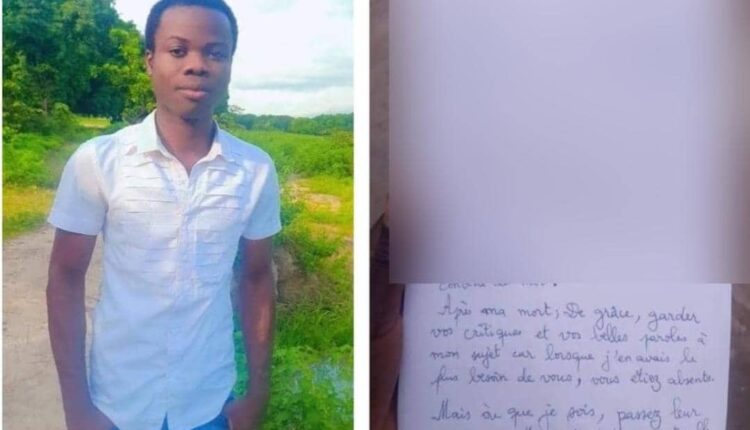 Après ma mort, De grâce, garder
vos critiques et vos belles paroles à
mon sujet car lorsque j'en avais le
plus besoin de vous, vous étiez absente.
Mais où que je sois, passez leur